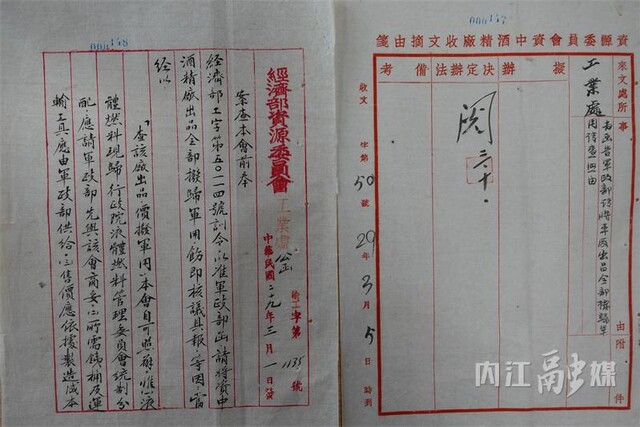 000147
資縣委員會資中酒精廠收文摘由箋
來文處所
事
由
附件
擬辦
決定辦法
備考
工業處
為函准軍政部請將本廠出品全部撥歸軍
用請查照由
閱
收文 字第50號 29年3月5日 時到
000148
經濟部資源委員會工業處公函
渝工字第1135號
中華民國二十九年三月一日發
案查本會前奉
經濟部工字第五〇二四號訓令以准軍政部函請將資中
酒精廠出品全部撥歸軍用飭即核議具報等因當
經以
「查該廠出品價撥軍用本會自可照辦惟液
體燃料現歸行政院液體燃料管理委員會統制分
配應請軍政部先與該會商妥所需銹桶及運
輸工具應由軍政部供給售價應依據製造成本
内江融媒